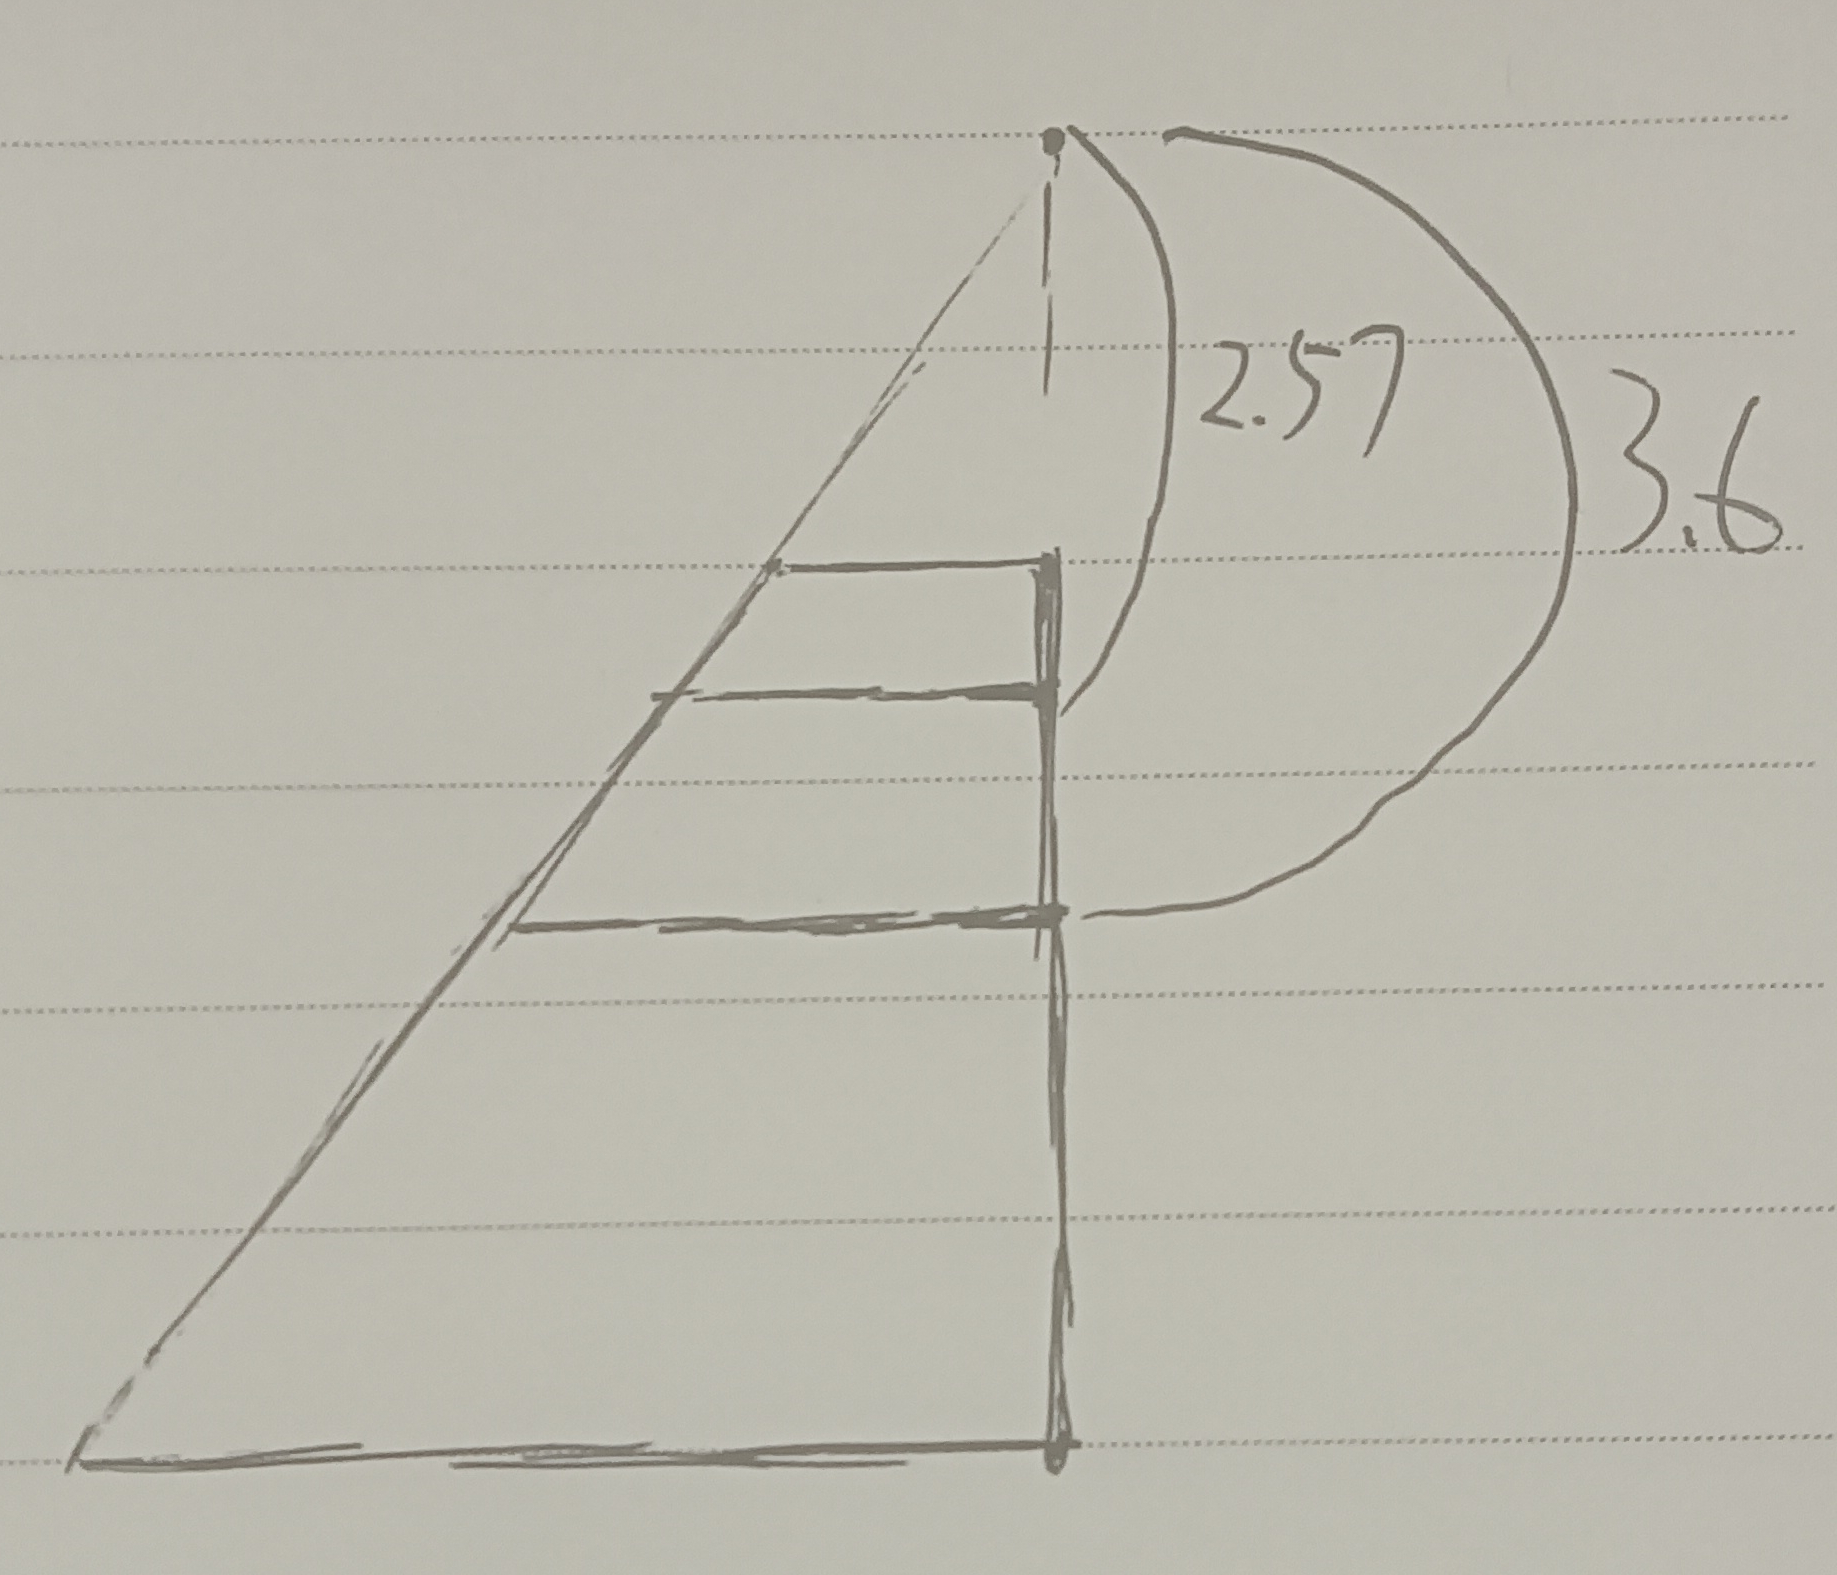 2.57
3.6